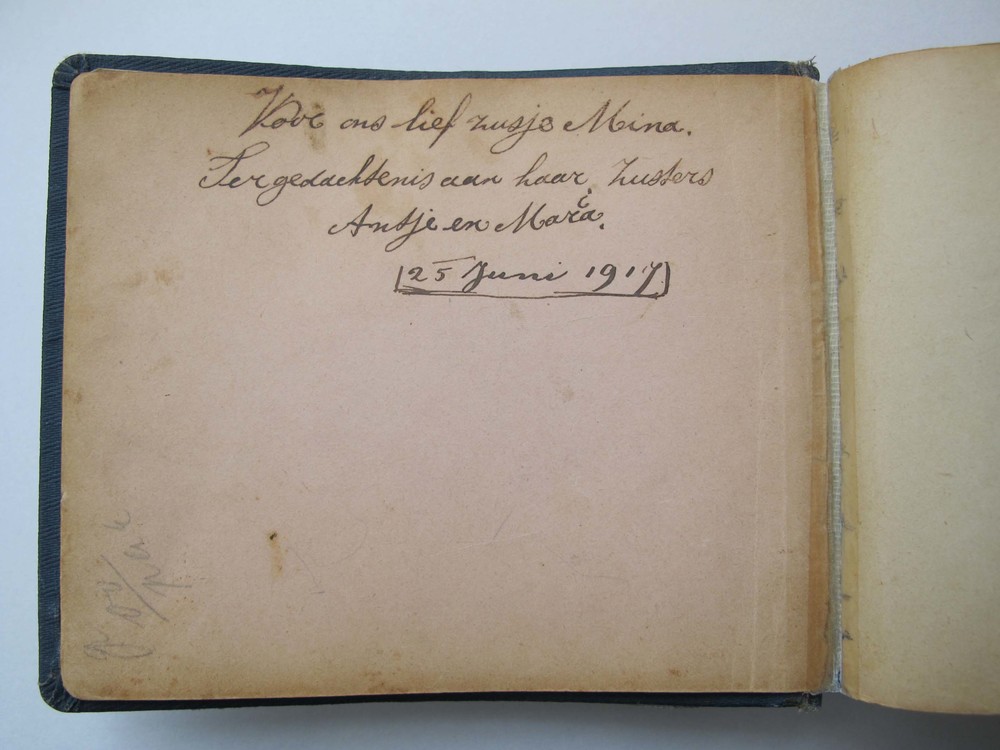 Voor ons lief zusje Mina.
Ter gedachtenis aan haar zusters
Antje en
25 Juni 1917